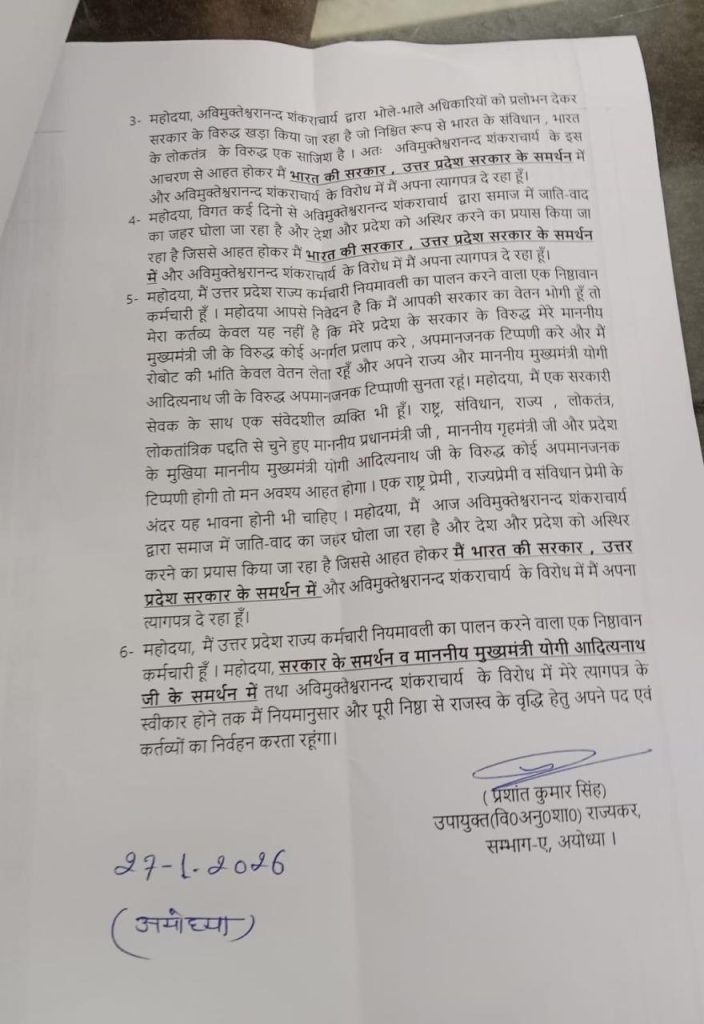 3- महोदया, अविमुक्तेश्वरानन्द शंकराचार्य द्वारा भोले-भाले अधिकारियों को प्रलोभन देकर
सरकार के विरुद्ध खड़ा किया जा रहा है जो निश्चित रूप से भारत के संविधान , भारत
के लोकतंत्र के विरुद्ध एक साजिश है । अतः अविमुक्तेश्वरानन्द शंकराचार्य के इस
आचरण से आहत होकर मैं भारत की सरकार , उत्तर प्रदेश सरकार के समर्थन में
और अविमुक्तेश्वरानन्द शंकराचार्य के विरोध में मैं अपना त्यागपत्र दे रहा हूँ।
4- महोदया, विगत कई दिनो से अविमुक्तेश्वरानन्द शंकराचार्य द्वारा समाज में जाति-वाद
का जहर घोला जा रहा है और देश और प्रदेश को अस्थिर करने का प्रयास किया जा
रहा है जिससे आहत होकर मैं भारत की सरकार , उत्तर प्रदेश सरकार के समर्थन
में और अविमुक्तेश्वरानन्द शंकराचार्य के विरोध में मैं अपना त्यागपत्र दे रहा हूँ।
5- महोदया, मैं उत्तर प्रदेश राज्य कर्मचारी नियमावली का पालन करने वाला एक निष्ठावान
कर्मचारी हूँ । महोदया आपसे निवेदन है कि मैं आपकी सरकार का वेतन भोगी हूँ तो
मेरा कर्तव्य केवल यह नहीं है कि मेरे प्रदेश के सरकार के विरुद्ध मेरे माननीय
मुख्यमंत्री जी के विरुद्ध कोई अनर्गल प्रलाप करे , अपमानजनक टिप्पणी करे और मैं
रोबोट की भांति केवल वेतन लेता रहूँ और अपने राज्य और माननीय मुख्यमंत्री योगी
आदित्यनाथ जी के विरुद्ध अपमानजनक टिप्पाणी सुनता रहूं। महोदया, मैं एक सरकारी
सेवक के साथ एक संवेदशील व्यक्ति भी हूँ। राष्ट्र, संविधान, राज्य , लोकतंत्र,
लोकतांत्रिक पद्दति से चुने हुए माननीय प्रधानमंत्री जी , माननीय गृहमंत्री जी और प्रदेश
के मुखिया माननीय मुख्यमंत्री योगी आदित्यनाथ जी के विरुद्ध कोई अपमानजनक
टिप्पणी होगी तो मन अवश्य आहत होगा । एक राष्ट्र प्रेमी , राज्यप्रेमी व संविधान प्रेमी के
अंदर यह भावना होनी भी चाहिए । महोदया, मैं आज अविमुक्तेश्वरानन्द शंकराचार्य
द्वारा समाज में जाति-वाद का जहर घोला जा रहा है और देश और प्रदेश को अस्थिर
करने का प्रयास किया जा रहा है जिससे आहत होकर मैं भारत की सरकार , उत्तर
प्रदेश सरकार के समर्थन में और अविमुक्तेश्वरानन्द शंकराचार्य के विरोध में मैं अपना
त्यागपत्र दे रहा हूँ।
6- महोदया, मैं उत्तर प्रदेश राज्य कर्मचारी नियमावली का पालन करने वाला एक निष्ठावान
कर्मचारी हूँ । महोदया, सरकार के समर्थन व माननीय मुख्यमंत्री योगी आदित्यनाथ
जी के समर्थन में तथा अविमुक्तेश्वरानन्द शंकराचार्य के विरोध में मेरे त्यागपत्र के
स्वीकार होने तक मैं नियमानुसार और पूरी निष्ठा से राजस्व के वृद्धि हेतु अपने पद एवं
कर्तव्यों का निर्वहन करता रहूंगा।
(प्रशांत कुमार सिंह)
उपायुक्त(वि0अनु0शा0) राज्यकर,
सम्भाग-ए, अयोध्या ।
27-1.2026
(अयोध्या)